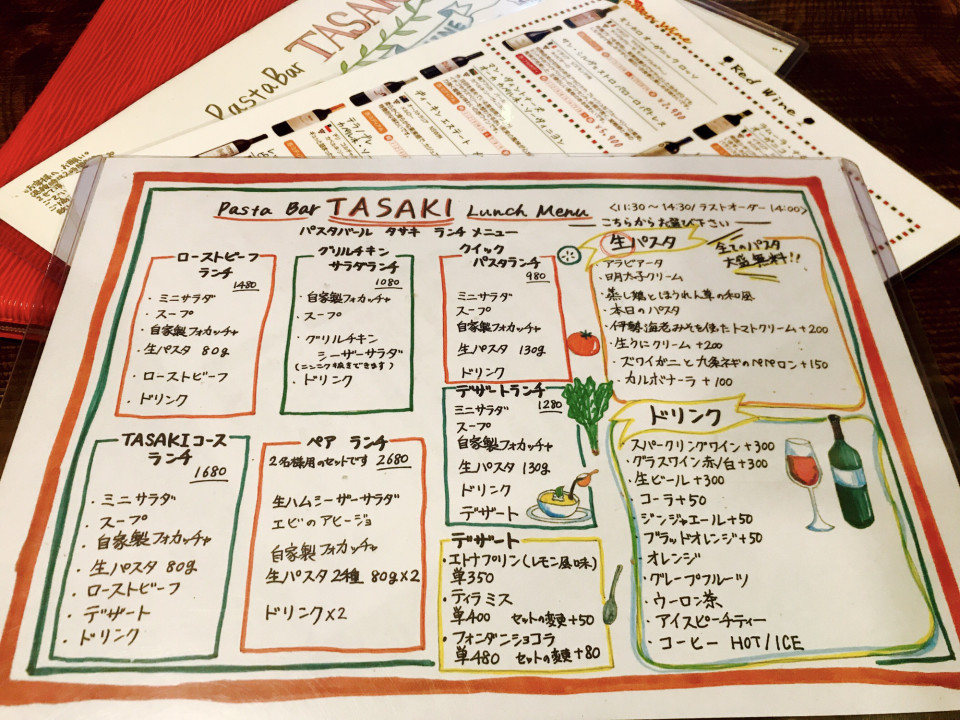 TASAKI
PastaBar
Red Wine
Pasta Bar TASAKI Lunch Menu
<11:30〜14:30/ラストオーダー14:00>
パスタバール タサキ ランチメニュー
こちらからお選び下さい
ローストビーフ
ランチ
1480
・ミニサラダ
・スープ
・自家製フォカッチャ
・生パスタ 80g
・ローストビーフ
・ドリンク
グリルチキン
サラダランチ
1080
・自家製フォカッチャ
・スープ
・グリルチキン
シーザーサラダ
(ニンニク抜きできます)
・ドリンク
クイック
パスタランチ
980
ミニサラダ
スープ
自家製フォカッチャ
生パスタ 130g
ドリンク
デザートランチ
1280
ミニサラダ
スープ
自家製フォカッチャ
生パスタ 130g
ドリンク
デザート
TASAKIコース
ランチ
1680
・ミニサラダ
・スープ
・自家製フォカッチャ
・生パスタ 80g
・ローストビーフ
・デザート
・ドリンク
ペア ランチ
2名様用のセットです 2680
生ハムシーザーサラダ
エビのアヒージョ
自家製フォカッチャ
生パスタ2種 80g×2
ドリンク×2
デザート
・エトナプリン(レモン風味)
単350
・ティラミス
単400 セットの変更+50
・フォンダンショコラ
単480 セットの変更+80
生パスタ
全てのパスタ
大盛無料!!
・アラビアータ
・明太子クリーム
・蒸し鶏とほうれん草の和風
・本日のパスタ
・伊勢海老みそを使たトマトクリーム+200
・生うにクリーム+200
・ズワイガニと九条ネギのペペロン+150
・カルボナーラ+100
ドリンク
スパークリングワイン+300
・グラスワイン赤/白+300
・生ビール+300
・コーラ+50
・ジンジャエール+50
・ブラッドオレンジ+50
・オレンジ
・グレープフルーツ
・ウーロン茶
・アイスピーチティー
・コーヒー HOT/ICE